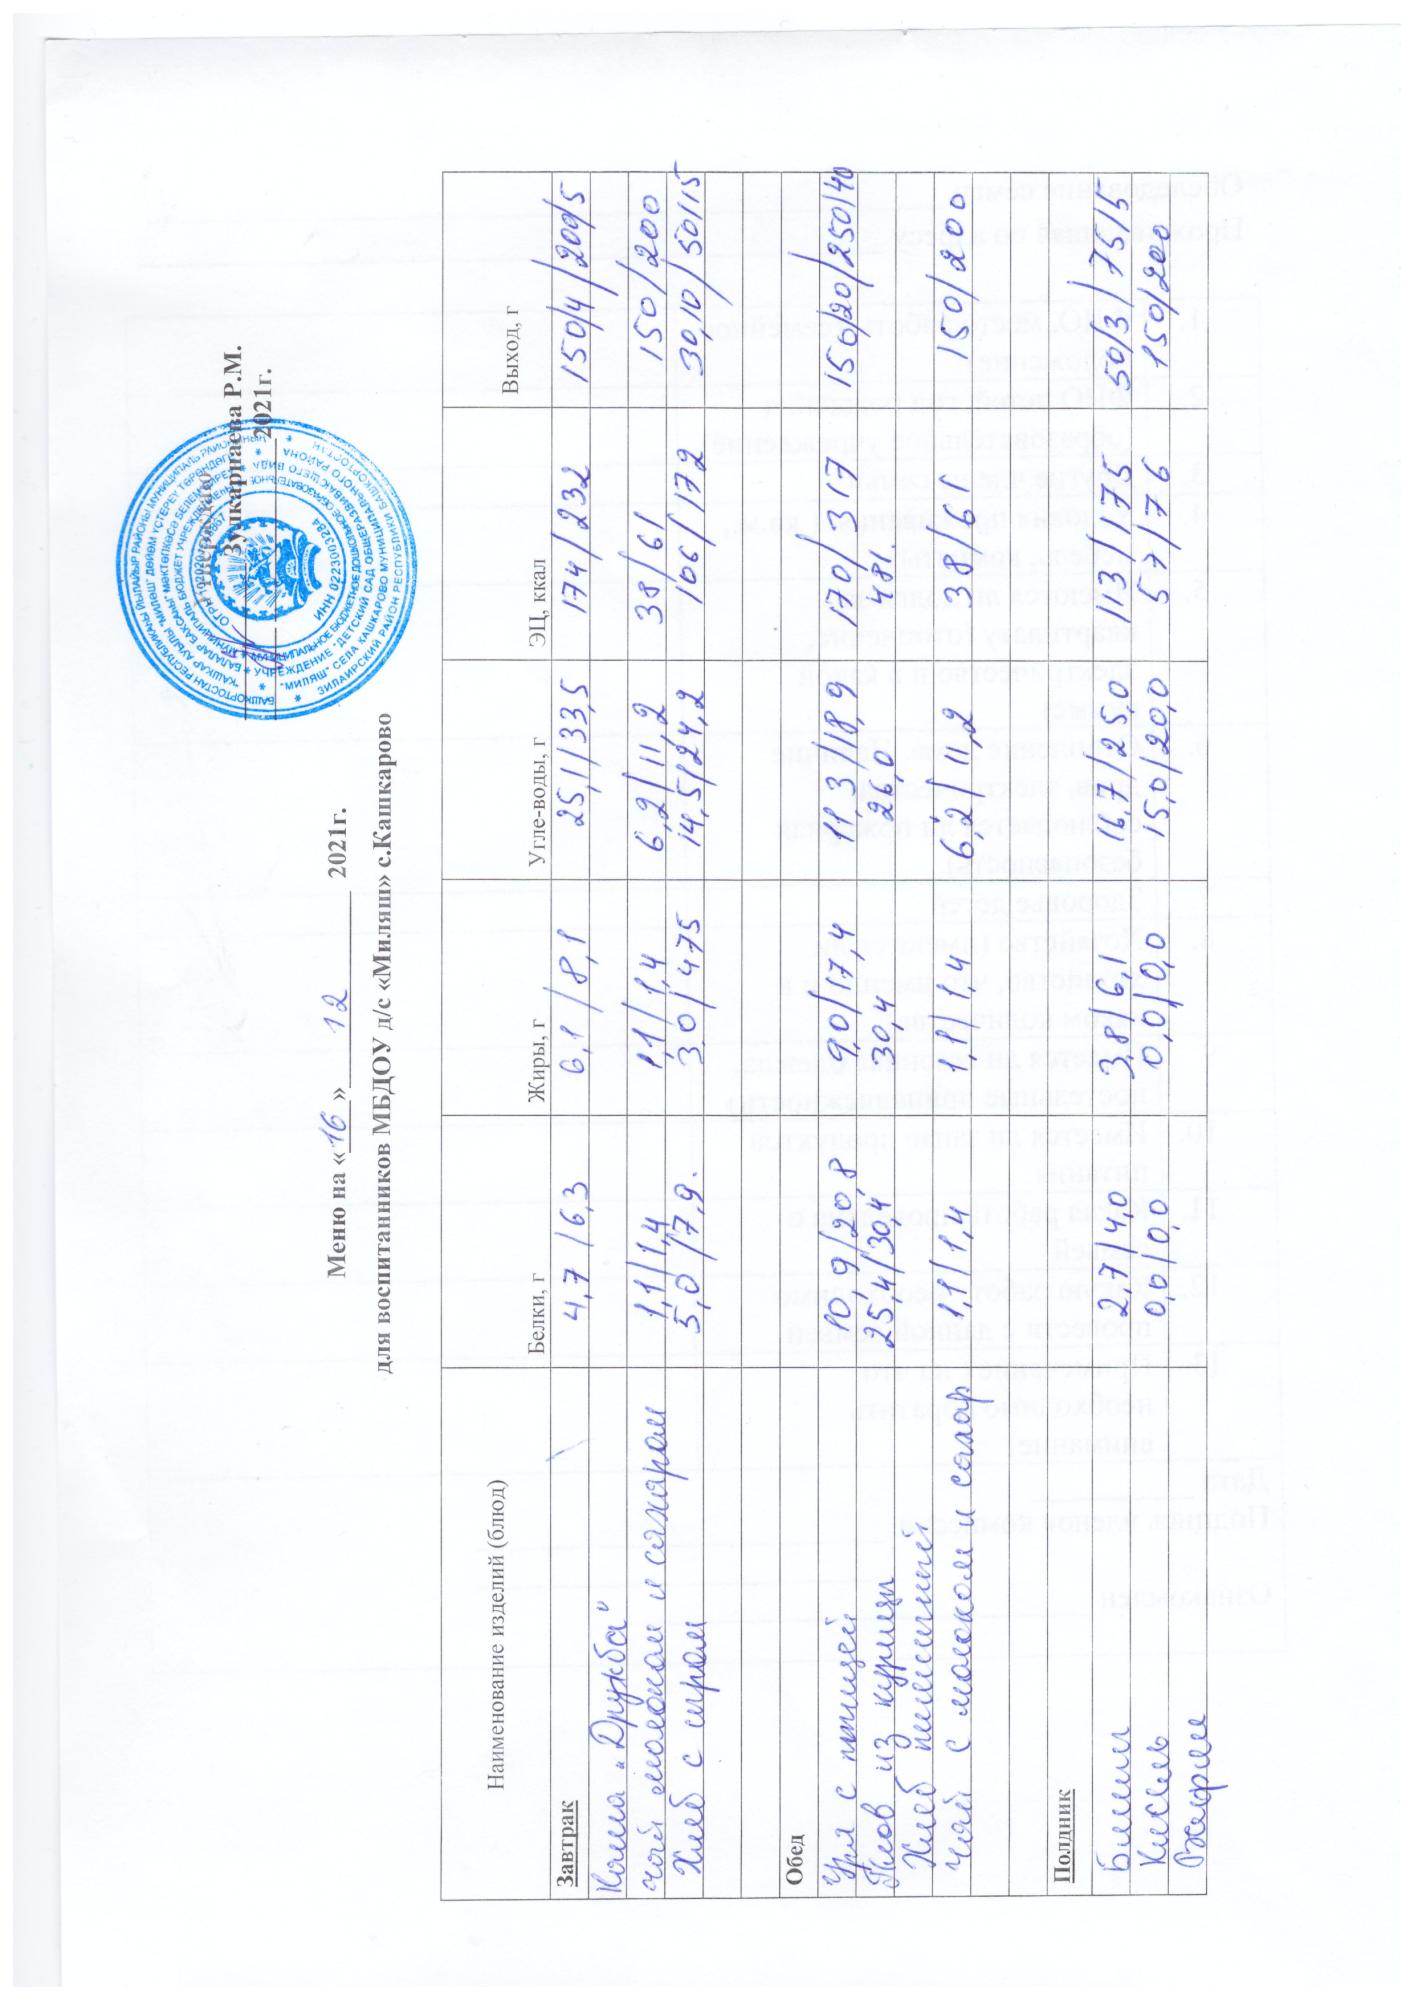 Утверждаю
Зулкарнаева Р.М.
2021г.
ИНН 0223003284
МУНИЦИПАЛЬНОЕ БЮДЖЕТНОЕ ДОШКОЛЬНОЕ ОБРАЗОВАТЕЛЬНОЕ
УЧРЕЖДЕНИЕ "ДЕТСКИЙ САД ОБЩЕРАЗВИВАЮЩЕГО ВИДА
"МИЛЯШ" СЕЛА КАШКАРОВО МУНИЦИПАЛЬНОГО РАЙОНА
ЗИЛАИРСКИЙ РАЙОН РЕСПУБЛИКИ БАШКОРТОСТАН
Меню на «16» 12 2021г.
для воспитанников МБДОУ д/с «Миляш» с.Кашкарово
Наименование изделий (блюд) Белки, г Жиры, г Угле-воды, г ЭЦ, ккал Выход, г
Завтрак 4,7/6,3 6,1/8,1 25,1/33,5 174/232 150/4/200/5
Каша „Дружба"
чай молоком и сахаром 1,1/1,4 1,1/1,4 6,2/11,2 38/61 150/200
Хлеб с сыром 5,0/7,9. 3,0/475 14,5/24,2 106/172 30,10/50/15
Обед
Ура с птицей 10,9/20,8 9,0/17,4 11,3/18,9 170/317 150/20/250/40
Плов из курицы 25,4/30,4 30,4 26,0 481
Хлеб пшеничный
Чай с молоком и сахар 1,1/1,4 1,1/1,4 6,2/11,2 38/61 150/200
Полдник
Блины 2,7/4,0 3,8/6,1 16,7/25,0 113/175 50/3/75/5
Кисель 0,0/0,0 0,0/0,0 15,0/20,0 57/76 150/200
Вафли